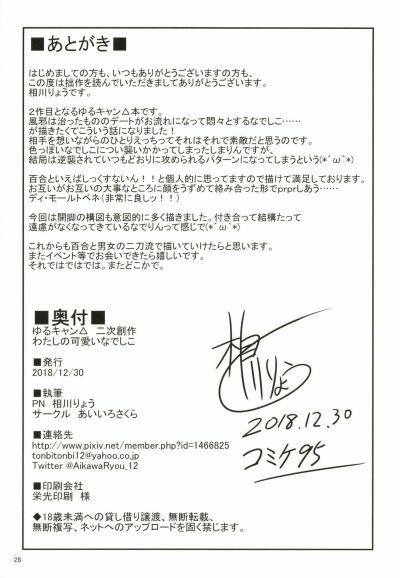 ■あとがき■
はじめましての方も、いつもありがとうございますの方も、
この度は拙作を読んでいただきましてありがとうございます。
相川りょうです。
2作目となるゆるキャン△本です。
風邪は治ったもののデートがお流れになって悶々とするなでしこ……
が描きたくてこういう話になりました!
相手を想いながらのひとりえっちってそれはそれで素敵だと思うのです。
色っぽいなでしこについ襲いかかってしまったしまりんですが、
結局は逆襲されていつもどおりに攻められるパターンになってしまうという(*´ω`*)
百合といえばしっくすないん!!と個人的に思ってますので描けて満足しております。
お互いがお互いの大事なところに顔をうずめて絡み合った形でprprしあう……
ディ・モールトベネ(非常に良しッ!)
今回は開脚の構図も意図的に多く描きました。付き合って結構たって
遠慮がなくなってきているなでりんって感じで(*´ω`*)
これからも百合と男女の二刀流で描いていけたらと思います。
またイベント等でお会いできたら嬉しいです。
それではではでは。またどこかで。
■奥付■
ゆるキャン△ 二次創作
わたしの可愛いなでしこ
■発行
2018/12/30
■執筆
PN 相川りょう
サークル あいいろさくら
■連絡先
http://www.pixiv.net/member.php?id=1466825
tonbitonbi12@yahoo.co.jp
Twitter @AikawaRyou_12
■印刷会社
栄光印刷 様
◆18歳未満への貸し借り譲渡、無断転載、
無断複写、ネットへのアップロードを固く禁じます。
相川りょう
2018.12.30
コミケ95
28